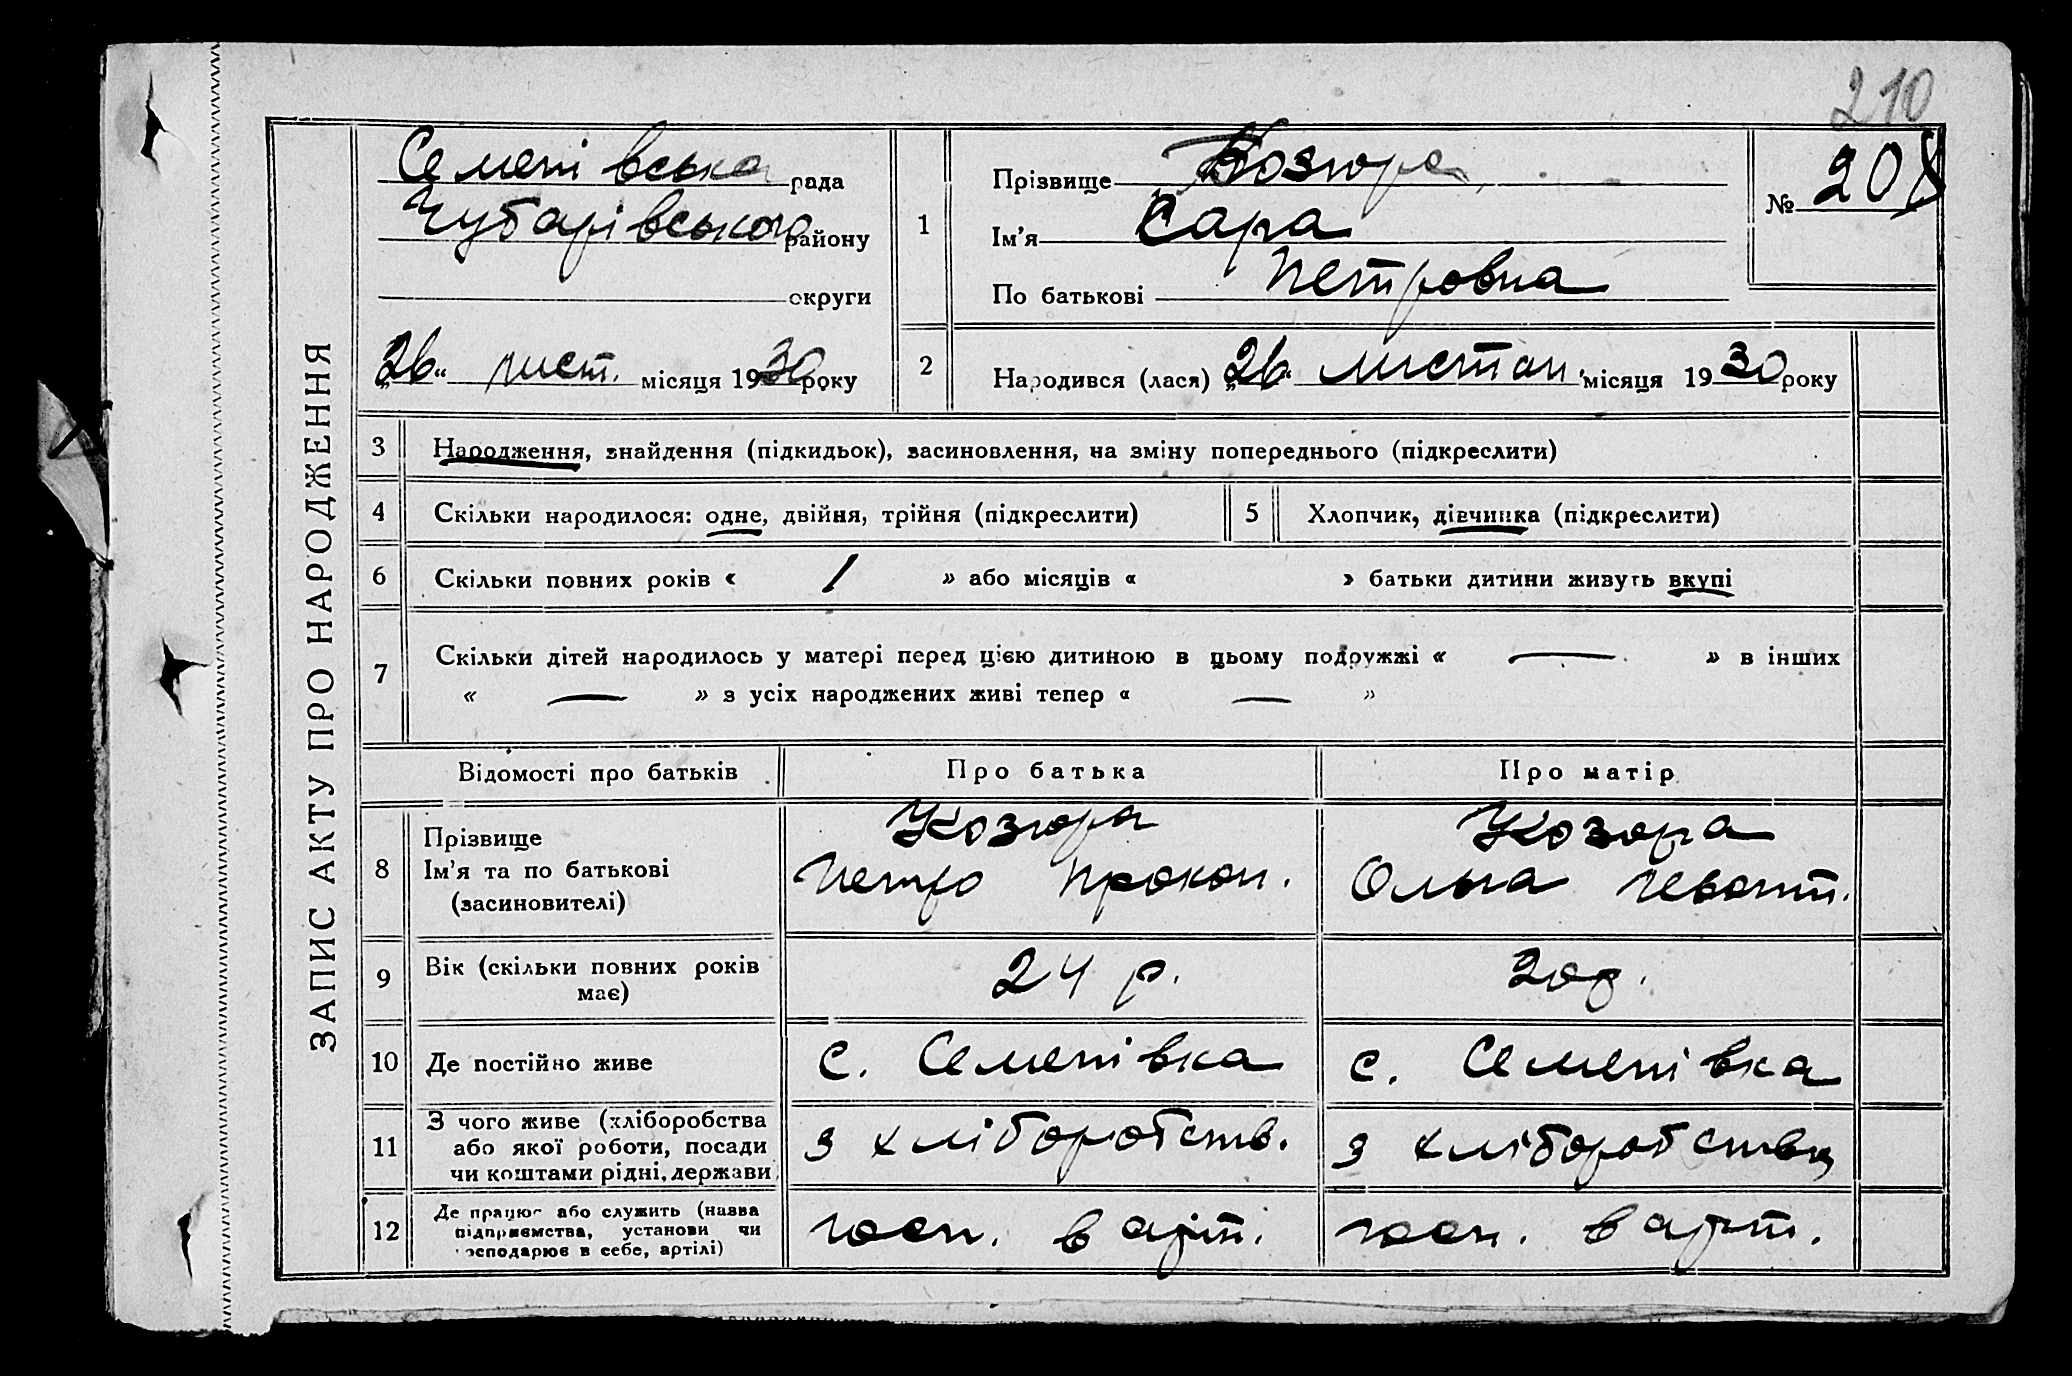 210
ЗАПИС АКТУ ПРО НАРОДЖЕННЯ
Семенівська рада
Чубарівського району
округи
„26“ лист. місяця 1930 року
1
Прізвище Козюра
Ім'я Сара
По батькові Петровна
№ 208
2
Народився (лася) „26“ листоп. місяця 1930 року
3 Народження, знайдення (підкидьок), засиновлення, на зміну попереднього (підкреслити)
4 Скільки народилося: одне, двійня, трійня (підкреслити)
5 Хлопчик, дівчинка (підкреслити)
6 Скільки повних років « 1 » або місяців « » батьки дитини живуть вкупі
7 Скільки дітей народилось у матері перед цією дитиною в цьому подружжі « — » в інших
« — » з усіх народжених живі тепер « — »
Відомості про батьків Про батька Про матір
8 Прізвище
Ім'я та по батькові
(засиновителі)
Козюра
Петро Прокоп.
Козюра
Ольга Левонт.
9 Вік (скільки повних років
має)
24 р.
20 р.
10 Де постійно живе
с. Семенівка
с. Семенівка
11 З чого живе (хліборобства
або якої роботи, посади
чи коштами рідні, держави
з хліборобств.
з хліборобства
12 Де працює або служить (назва
підприємства, установи чи
господарює в себе, артілі)
госп. в арт.
госп. в арт.